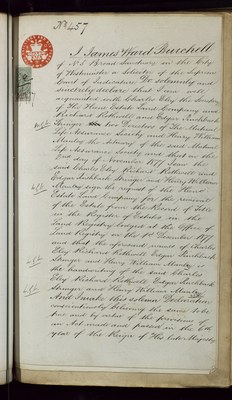 No. 457
I James Ward Burchell
of No. 5 Broad Sanctuary in the City
of Westminster a Solicitor of the Supreme
Court of Judicature Do solemnly and
sincerely declare that I am well
acquainted with Charles Eley the Secretary
of The Hune Estate Land Company and
Richard Kethwell and Edgar
Stringer two Directors of The Mutual
Life Assurance Society and Henry William
Manley the Actuary of the said Mutual
Life Assurance Society and that on the
2nd day of November 1877 I saw the
said Charles Eley Richard Kethwell and
Edgar Stringer and Henry William
Manley sign the request of the Hune
Estate Land Company for the removal
of the Estate from the Record of Title
in the Register of Estates in the
Land Registry lodged at the Office of
Land Registry on the November 1877
and that the several names of Charles
Eley Richard Kethwell Edgar
Stringer and Henry William Manley
the handwriting of the said Charles
Eley Richard Kethwell Edgar
Stringer and Henry William Manley
And I make this solemn Declaration
conscientiously believing the same to be
true and by virtue of the provisions of
an Act made and passed in the 6th
year of the Reign of His late Majesty